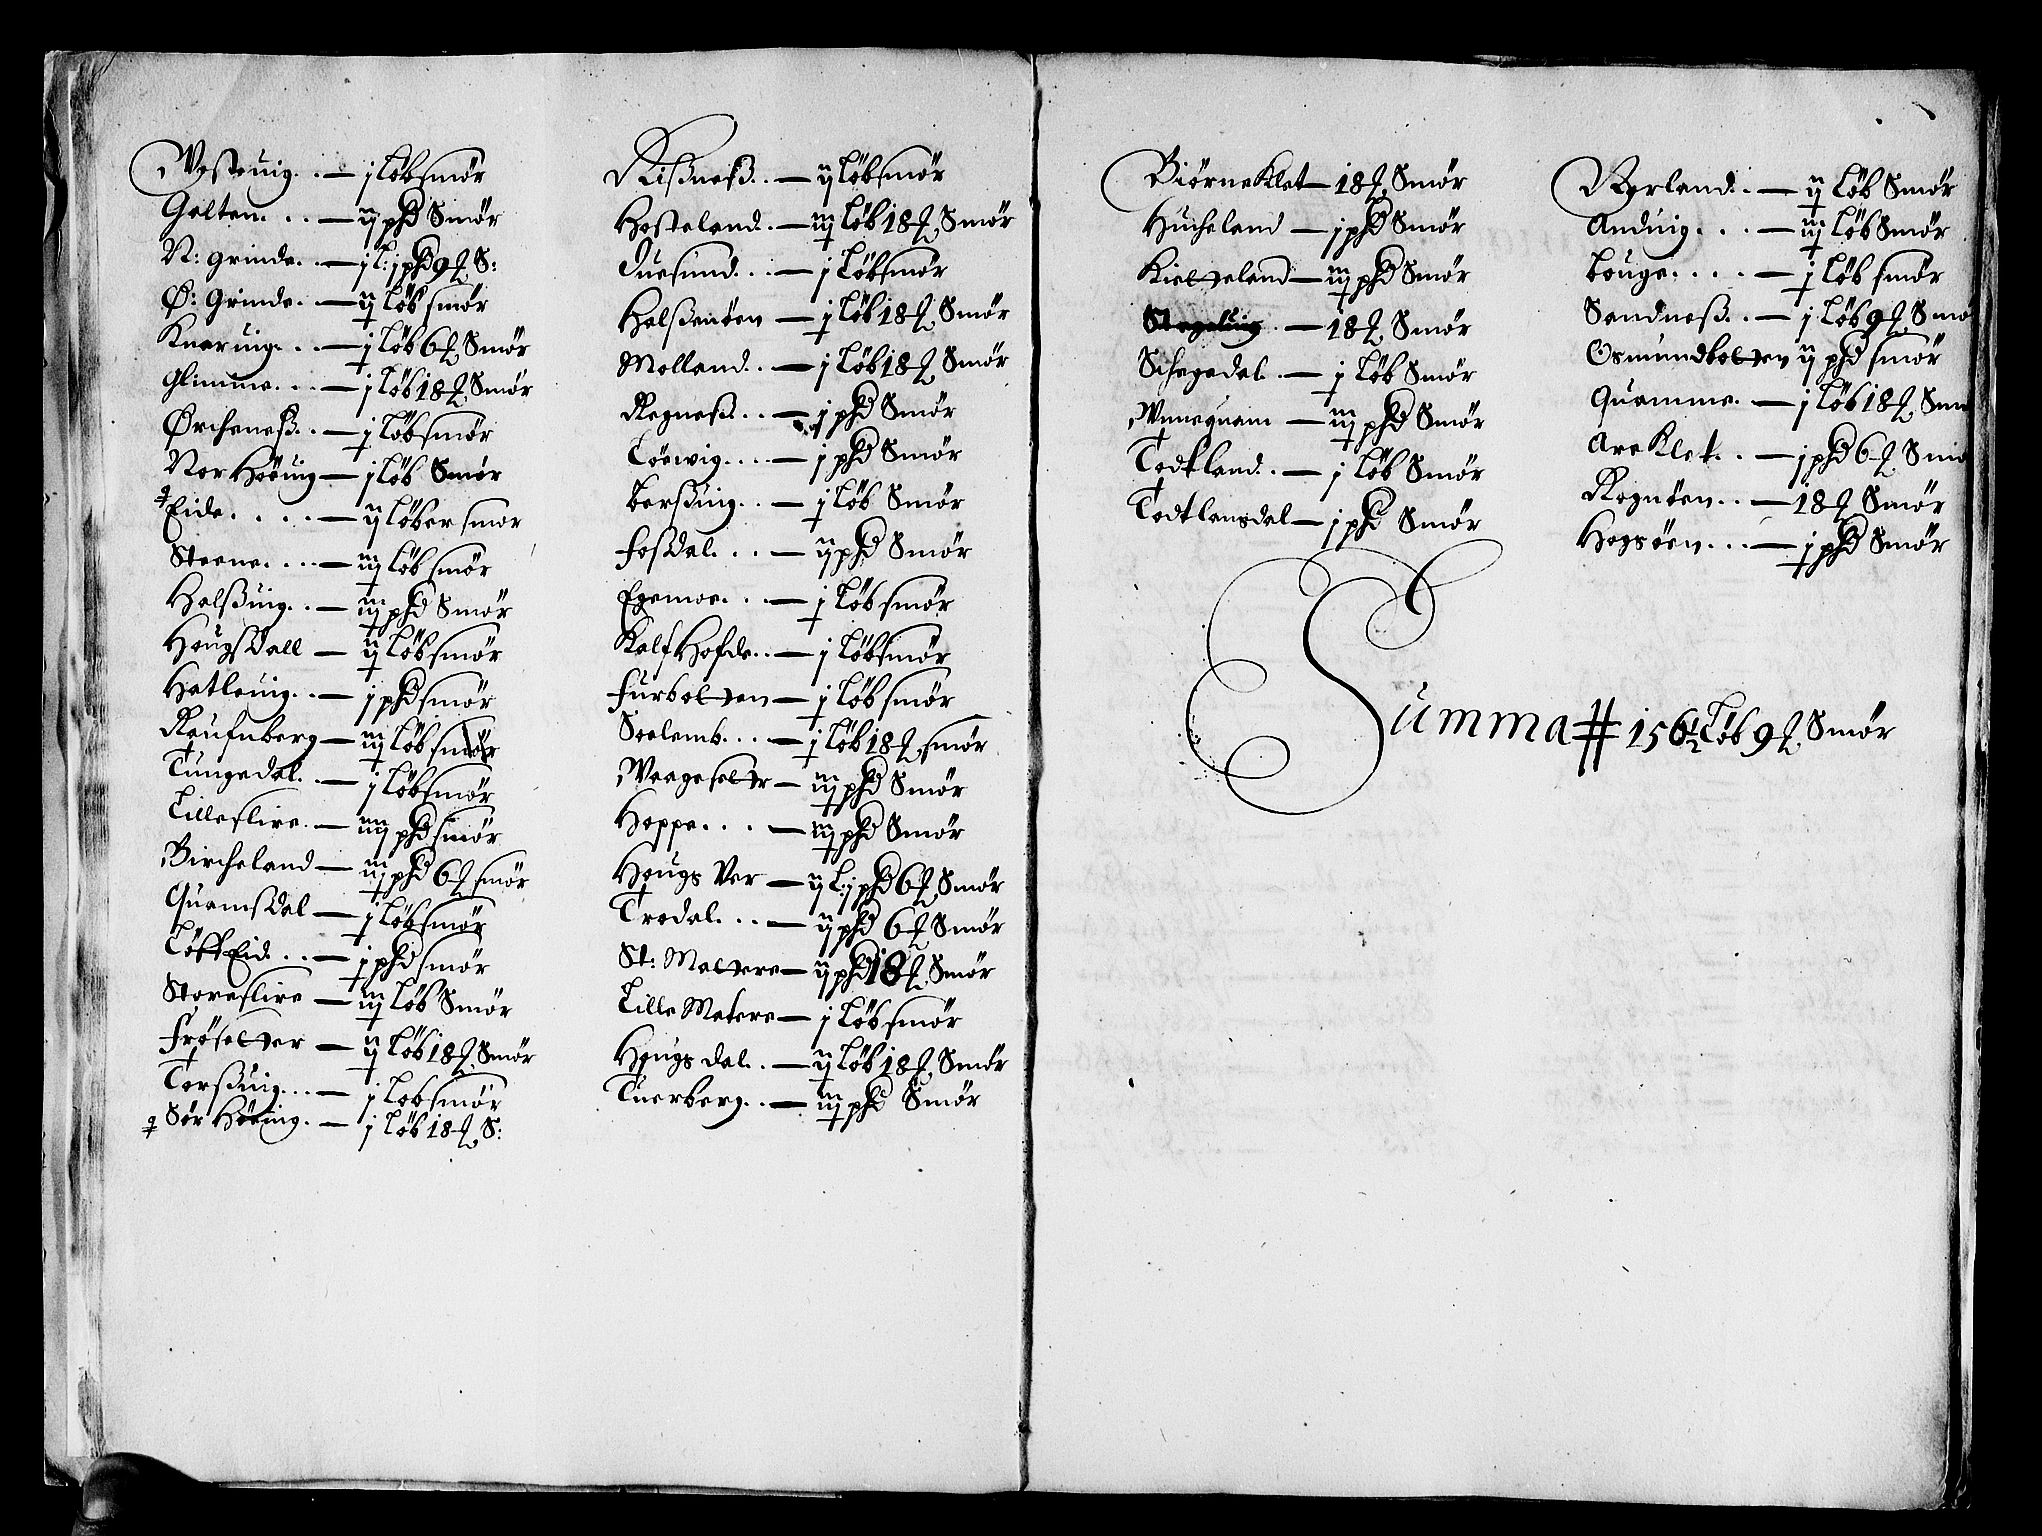 Vestuig. . — j Løb smør
Galten. . . . — ij phd Smør
N: Grinde. . — j L: j phd 9 ₰ S:
Ø: Grinde. — ij Løb smør
Knaruig. . . — j Løb 6 ₰ Smør
Glimme. . . . — j Løb 18 ₰ Smør
Ørcheneß. . — j Løb smør
Nor Høuig — j Løb Smør
Eide. . . . . — ij Løber smør
Steene. . . . — iij Løb smør
Halßuig. . — iij phd Smør
Hougsdall — ij Løb smør
Hatleuig. . — j phd smør
Raufnberg — iij Løb smør
Tungedal. . — j Løb smør
Lilleslire. — iiij phd smør
Bircheland — iij phd 6 ₰ smør
Quamsdal — j Løb smør
Løff Eid. . . — j phd smør
Storeslire — iij Løb Smør
Frøsetter — ij Løb 18 ₰ Smør
Torßuig. . . — j Løb smør
Sør Høuig. — j Løb 18 ₰ S:
Rißneß. . — ij Løb smør
Hosteland. — iij Løb 18 ₰ Smør
Duesund. . . — j Løb smør
Halßenøen — j Løb 18 ₰ Smør
Molland. . — j Løb 18 ₰ Smør
Regneß. . . — j phd Smør
Tøewig. . . . — j phd Smør
Berßuig. . — j Løb Smør
Fosdal. . . — ij phd Smør
Egemoe. . . — j Løb smør
Kalf Hofde. . — j Løb smør
Furbotten — j Løb smør
Soelemb. . . — j Løb 18 ₰ smør
Waagesetter — iij phd Smør
Hoppe. . . . — iij phd Smør
Hougs Ver — ij L: j phd 6 ₰ Smør
Tredal. . . — ij phd 6 ₰ Smør
St: Mattere — ij phd 18 ₰ Smør
Lille Matere — j Løb smør
Hougs dal. . — ij Løb 18 ₰ Smør
Tuerberg. . — iij phd Smør
Biørneklet — 18 ₰ Smør
Hucheland — j phd Smør
Kietteland — iij phd Smør
— 18 ₰ Smør
Schagedal. . — j Løb Smør
Vnnequam — iij phd Smør
Todtland. . — j Løb Smør
Todtlansdal — j phd Smør
Byrland. . — ij Løb Smør
Anduig. . . — iij Løb Smør
Bouge. . . . . — j Løb smør
Sandneß. . — j Løb 9 ₰ Smø
Osmundbotten ij phd smør
Quamme. — j Løb 18 ₰ Smø
Are Klet. . — j phd 6 ₰ Smø
Rognøen. . — 18 ₰ Smør
Hogsøen. . . — j phd Smør
Summa # 156½ Løb 9 ₰ Smør